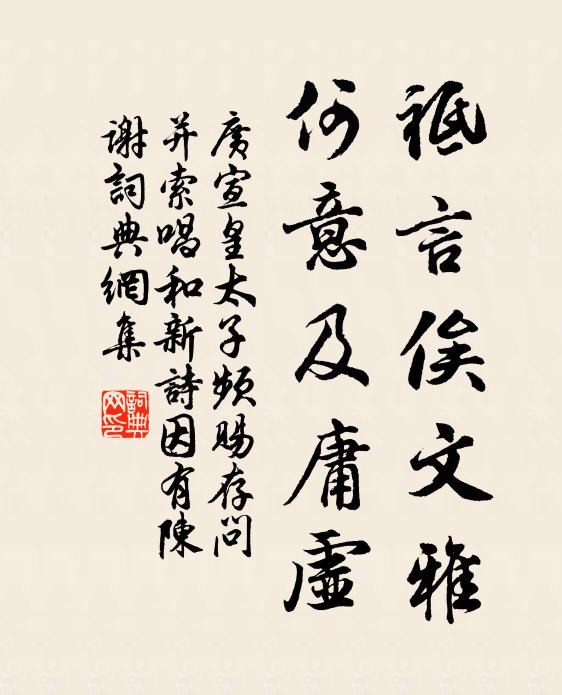 祗言俟文雅
何意及庸虛
廣宣皇太子頻賜存問
并索唱和新詩因有陳
謝詞典網集
詞典
网印